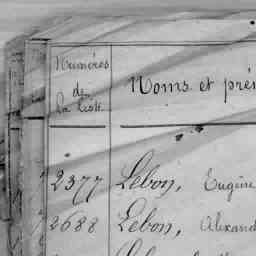 Numéros
de
la liste
Noms et pré
2377 Lebon, Eugène
2688 Lebon, Alexand